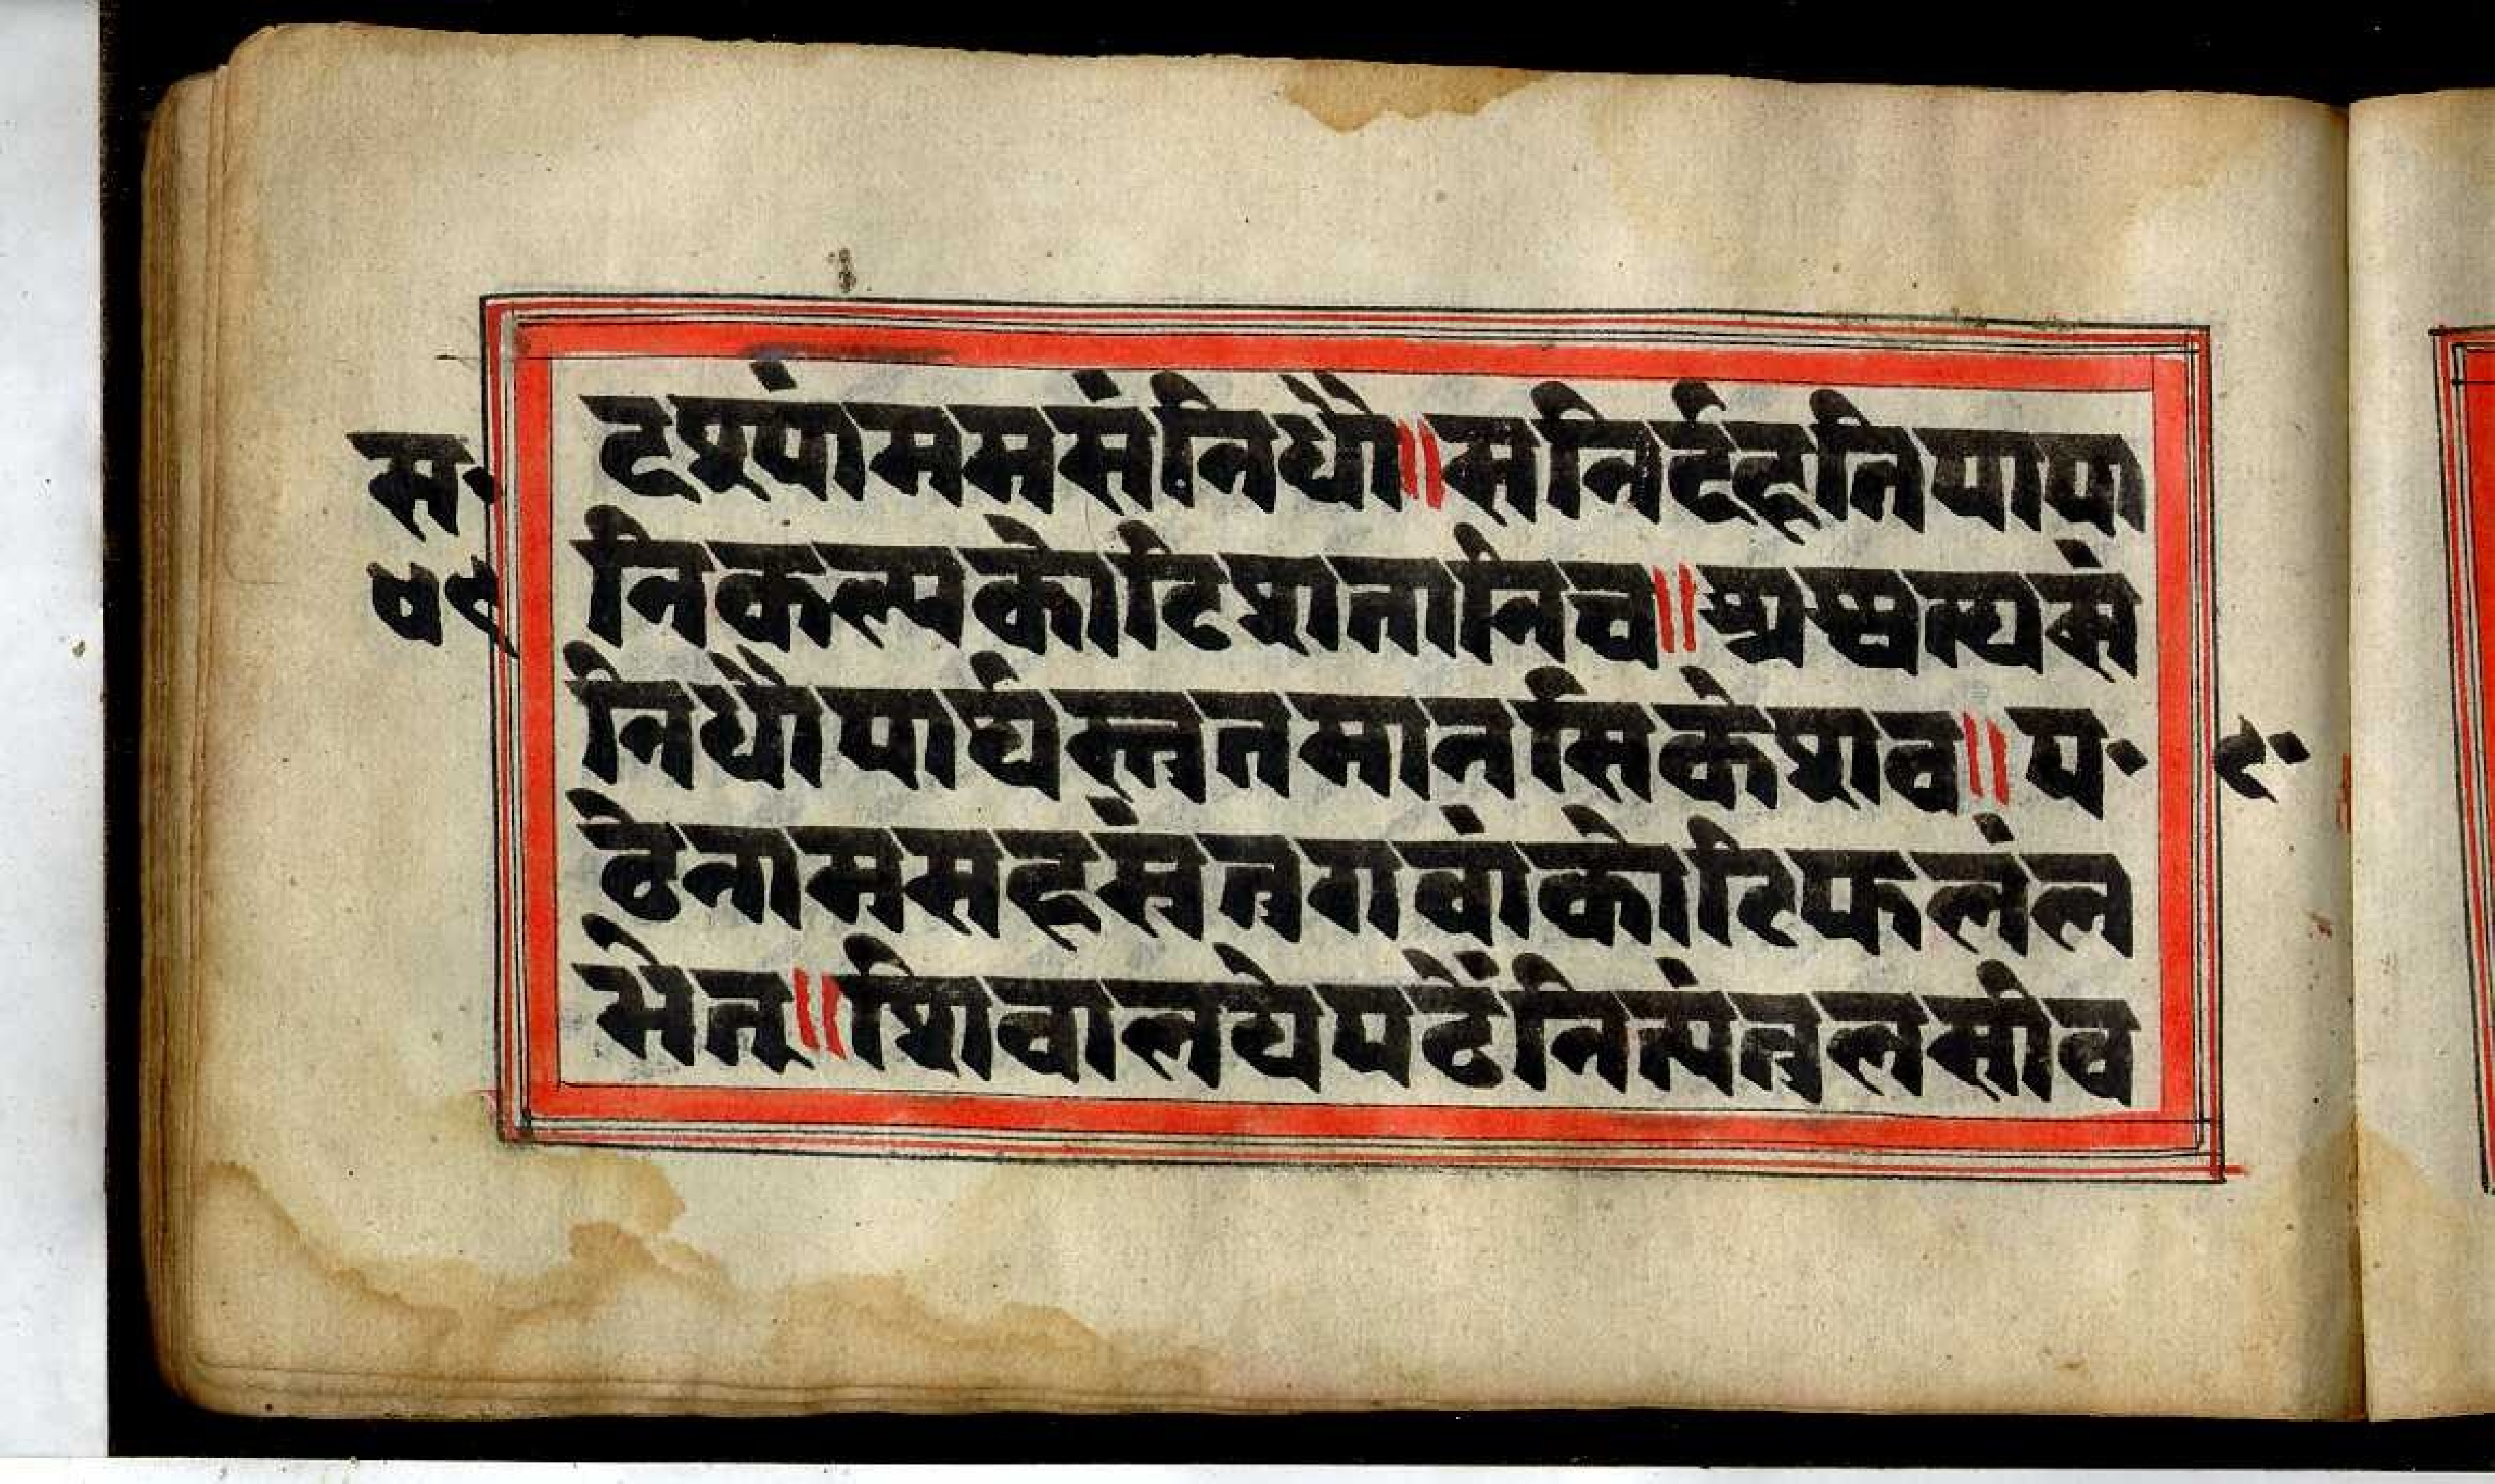 स॰
५९
टश्र्यांममसंनिधौ॥सनिर्दहतिपापा
निकल्पकोटिशतानिच॥अश्वत्थसं
निधौपार्थस्तुतमानसिकेशव॥प॰
ठेन्नामसहस्रंतुगवांकोटिफलंल
भेत्॥शिवालयेपठेंनित्यंतुलसीव
र॰